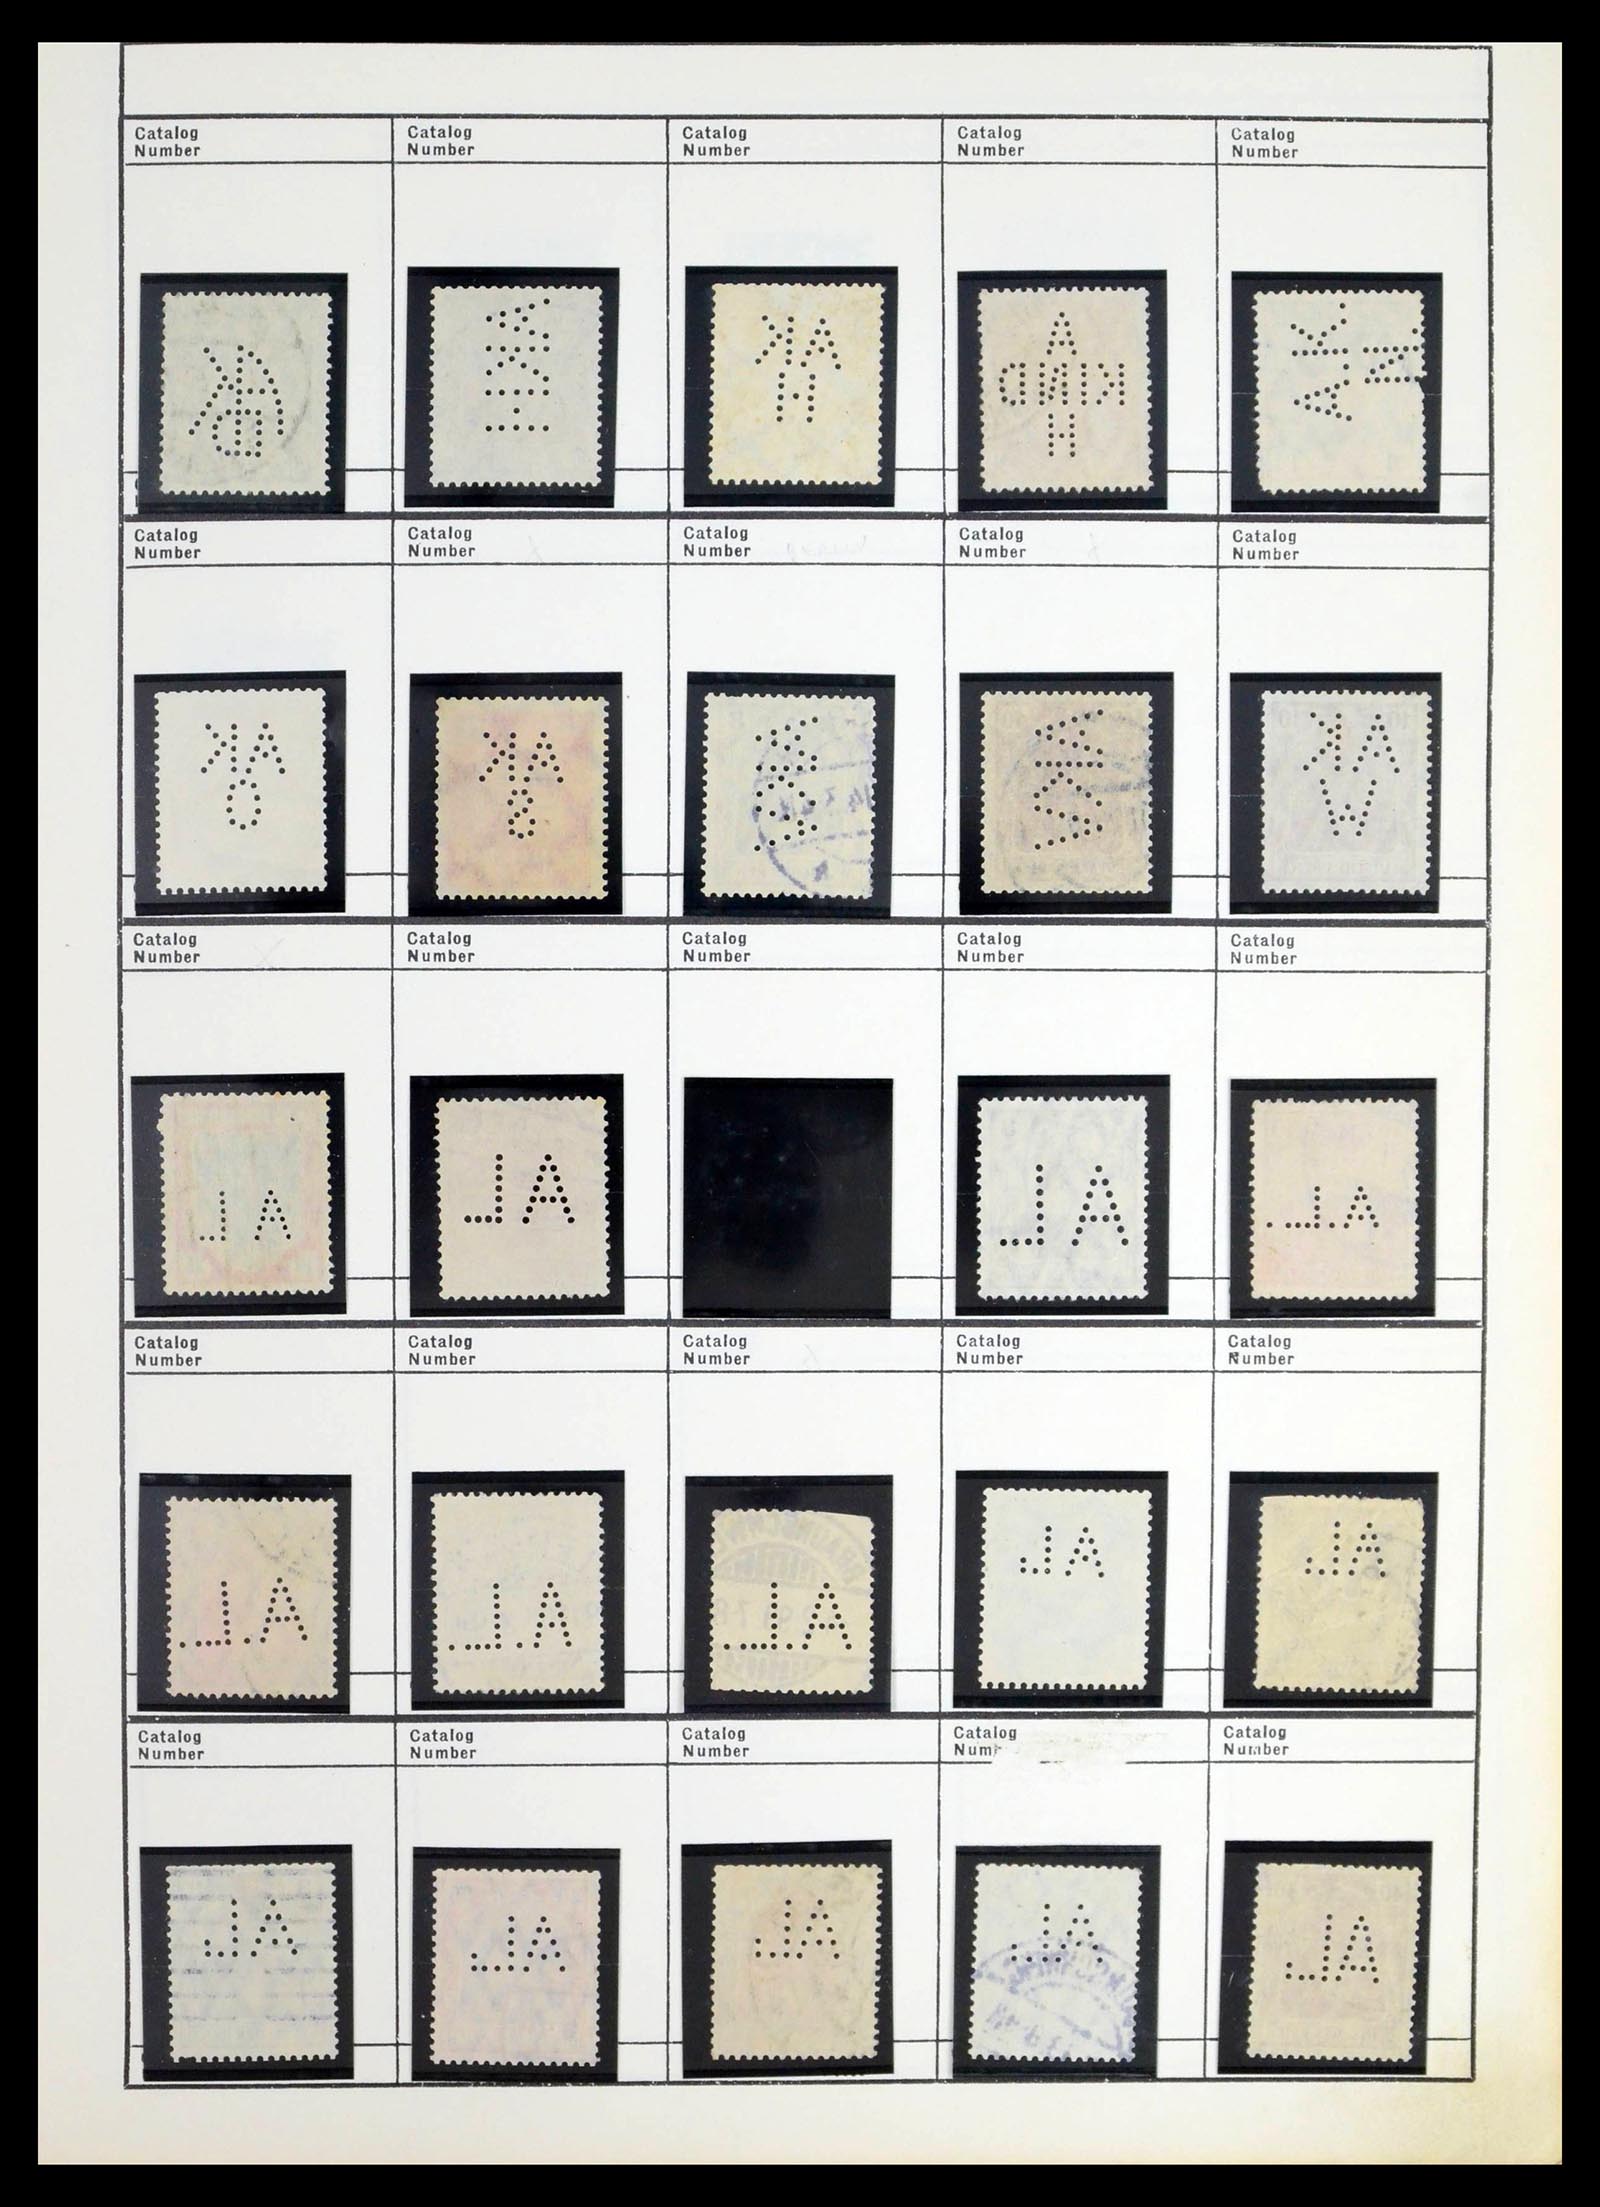 Catalog Number
Catalog Number
Catalog Number
Catalog Number
Catalog Number
AK
H
A
KIND
H
A.K.
N.
Catalog Number
Catalog Number
Catalog Number
Catalog Number
Catalog Number
AK
O
AK
S
AK
W
Catalog Number
Catalog Number
Catalog Number
Catalog Number
Catalog Number
AL
AL
AL
A.L.
Catalog Number
Catalog Number
Catalog Number
Catalog Number
Catalog Number
A.L.
A.L.
A.L.
AL
AL
Catalog Number
Catalog Number
Catalog Number
Catalog
Catalog Number
AL
AL
AL
A.L.
AL